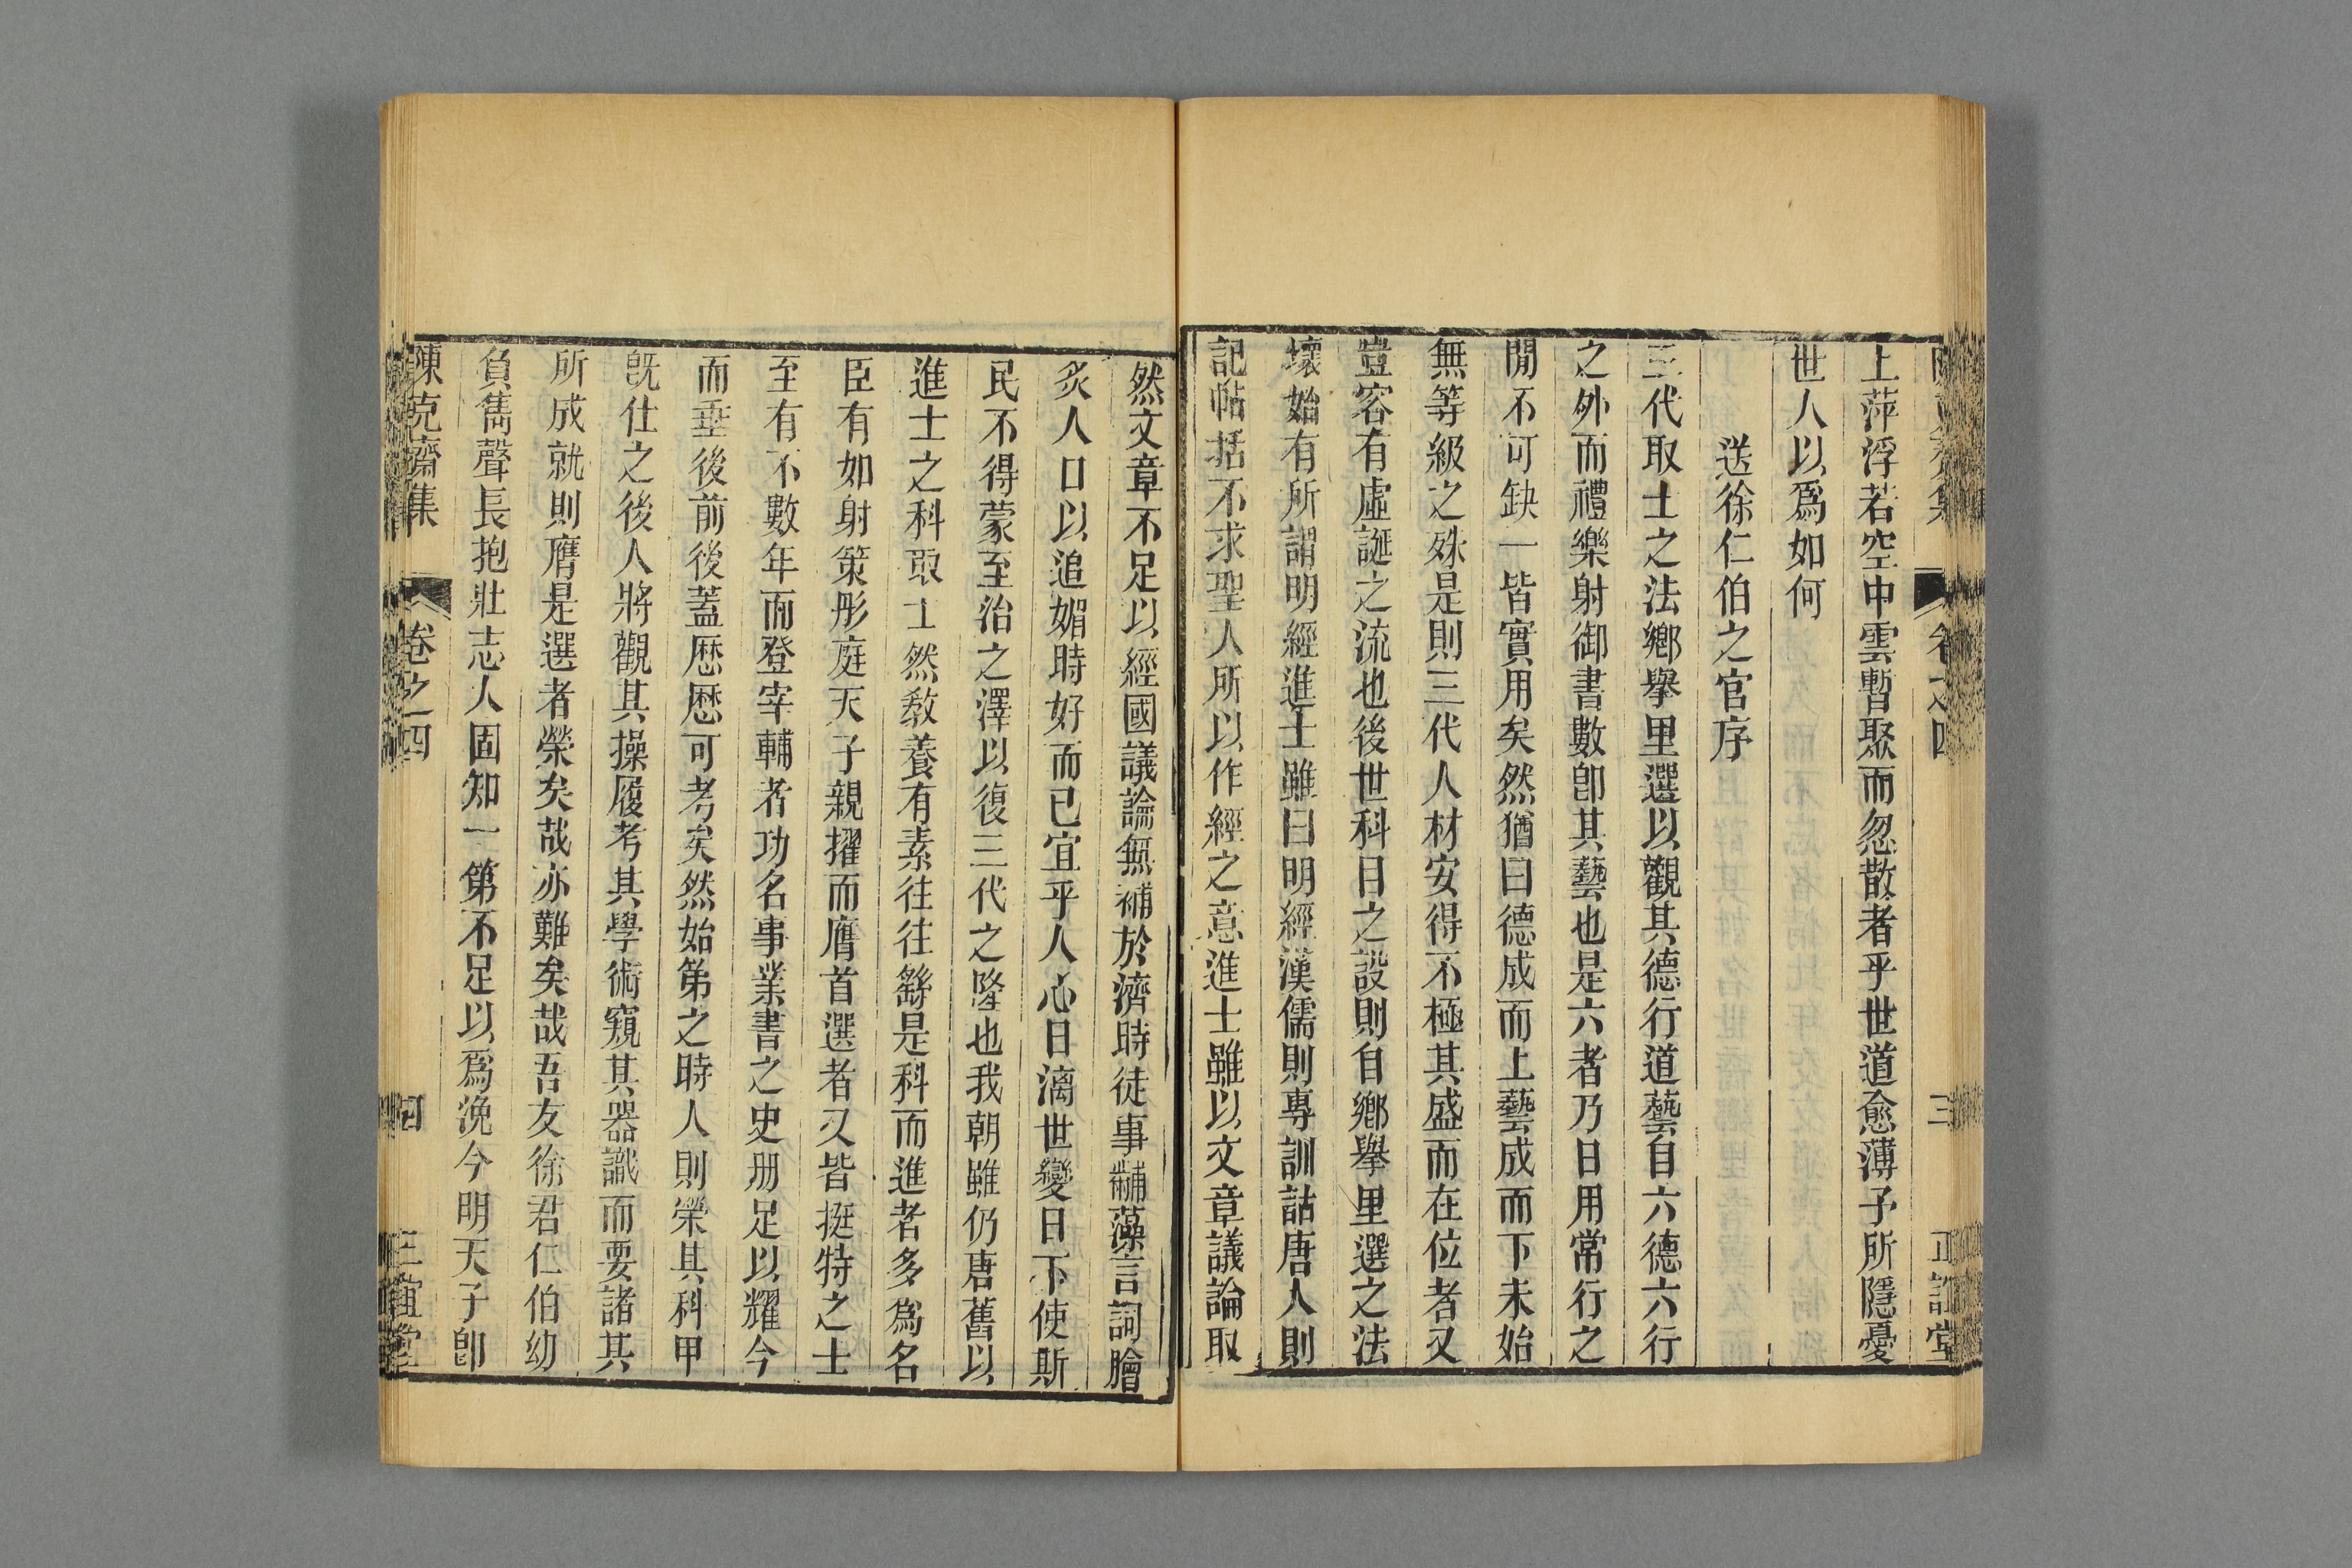 上萍浮若空中雲暫聚而忽散者乎世道愈薄予所隱憂
世人以爲如何
送徐仁伯之官序
三代取士之法鄉舉里選以觀其德行道藝自六德六行
之外而禮樂射御書數卽其藝也是六者乃日用常行之
閒不可缺一皆實用矣然猶曰德成而上藝成而下未始
無等級之殊是則三代人材安得不極其盛而在位者又
豈容有虛誕之流也後世科目之設則自鄉舉里選之法
壞始有所謂明經進士雖曰明經漢儒則專訓詁唐人則
記帖括不求聖人所以作經之意進士雖以文章議論取
然文章不足以經國議論無補於濟時徒事黼藻言詞膾
炙人口以追媚時好而已宜乎人心日漓世變日下使斯
民不得蒙至治之澤以復三代之隆也我朝雖仍唐舊以
進士之科取士然敎養有素往往繇是科而進者多爲名
臣有如射策彤庭天子親擢而膺首選者又皆挺特之士
至有不數年而登宰輔者功名事業書之史册足以耀今
而垂後前後蓋歷歷可考矣然始第之時人則榮其科甲
旣仕之後人將觀其操履考其學術窺其器識而要諸其
所成就則膺是選者榮矣哉亦難矣哉吾友徐君仁伯幼
負雋聲長抱壯志人固知一第不足以爲浼今明天子卽
陳克齋集 卷之四 四 正誼堂